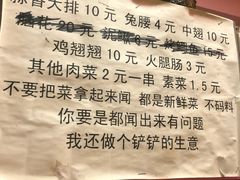 蒜香大排 10 元 兔腰 4 元 中翅 10 元
腰花 20 元
鸡翘翘 10 元 火腿肠 3 元
其他肉菜 2 元一串 素菜 1.5 元
不要把菜拿起来闻 都是新鲜菜 不码料
你要是都闻出来有问题
我还做个铲铲的生意